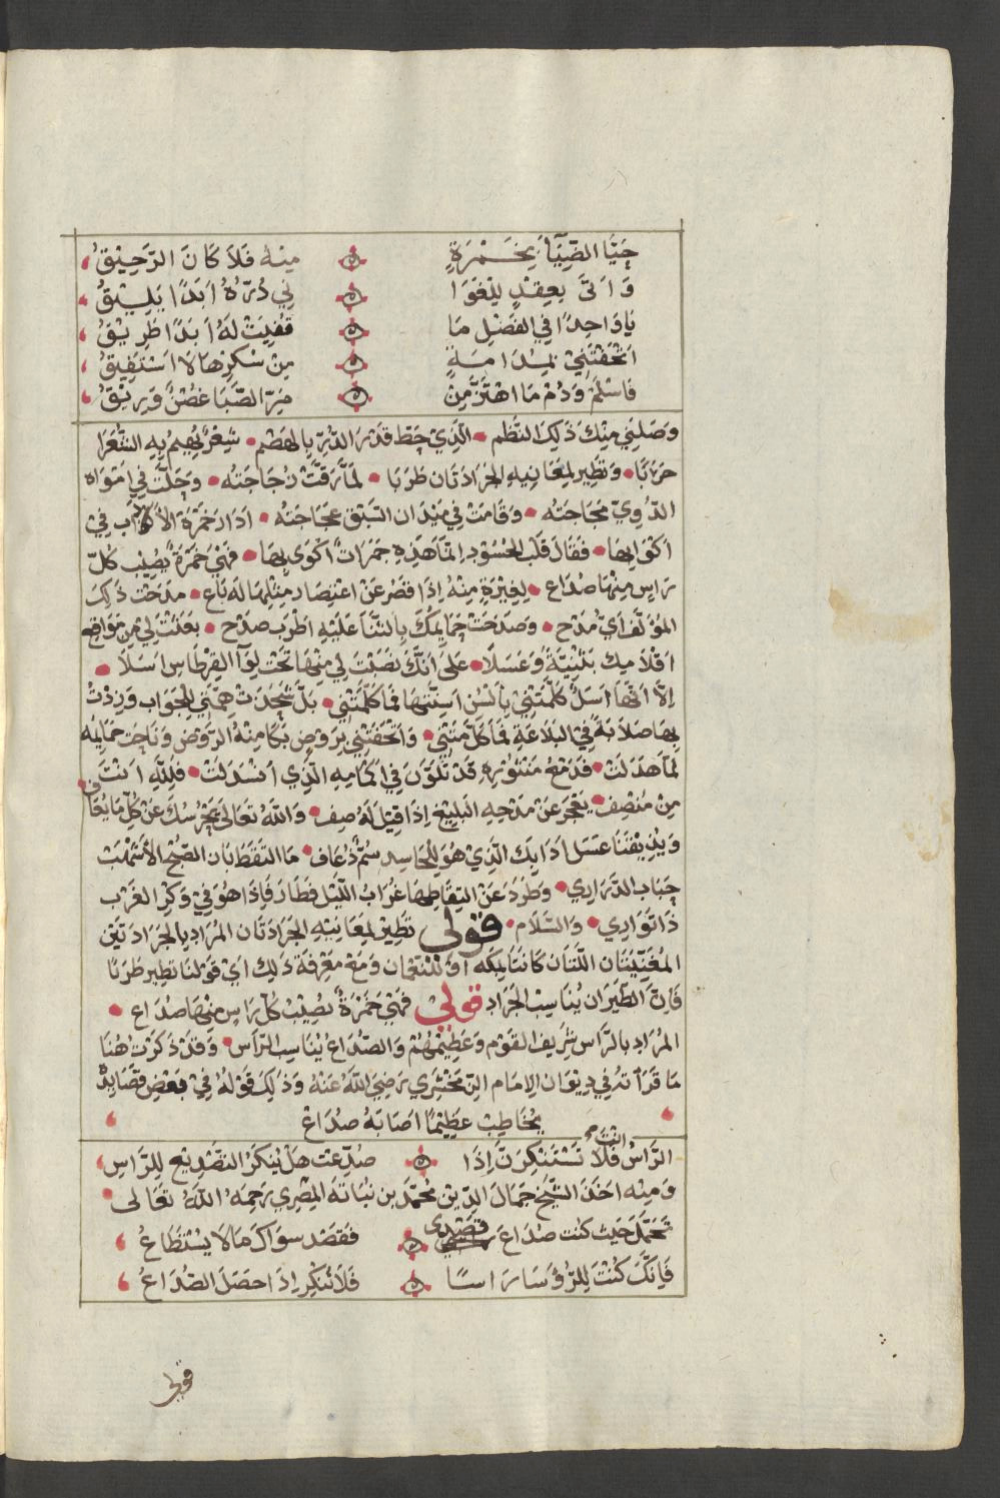 حَيَّا الضِّيَآءَ بِخَمْرَةٍ ۞ مِنْهُ فَلَا كَانَ الرَّحِيْقُ
وَاَتَى بِعِقْدٍ لِلْغَوَا ۞ نِي دُرُّهُ اَبَدًا يَلِيْقُ
يَا وَاحِدًا فِي الفَضْلِ مَا ۞ قُفِيَتْ لَهُ اَبَدًا طَرِيْقُ
اَتْحَفْتَنِي بِمُدَامَةٍ ۞ مِنْ سُكْرِهَا لَا اَسْتَفِيْقُ
فَاسْلَمْ وَدُمْ مَا اهْتَزَّ مِنْ ۞ مَرِّ الصَّبَا غُصْنٌ وَرِيْقُ
وَصَلَنِي مِنْكَ ذَلِكَ النَّظْم • الَّذِي حَطَّ قَدْرَ الدُّرِّ بِالهَضْم • شِعْرٌ يَهِيْمُ بِهِ الشُّعَرَا
حَرَبًا • وَتَطِير لِمَعَانِيهِ الجَرَادَتَان طَرَبَا • لَمَّا رَقَّتْ زُجَاجَتُه • وَحَلَّتْ فِي اَفْوَاه
الرُّوِيّ مُجَاجَتُه • وَقَامَتْ فِي مَيْدَان السَّبْق عَجَاجَتُه • اَدَارَ خَمْرَةَ الْآدَاب فِي
اَكْوَابِهَا • فَقَالَ قَلْبُ الحَسُوْدِ اِنَّمَا هَذِهِ جَمَرَاتٌ اُكْوَى بِهَا • فَهْيَ خَمْرَةٌ يُصِيْب كُلَّ
رَاسٍ مِنْهَا صُدَاع • لِغَيْرَةٍ مِنْهُ اِذَا قَصُرَ عَنْ اعْتِصَارِ مِثْلِهَا لَهُ بَاع • مَدَحْتَ ذَلِكَ
المُؤَلَّفَ اَيَّ مَدْح • وَصَدَحَتْ حَمَايِمُكَ بِالثَّنَا عَلَيْهِ اَطْرَبَ صَدْح • بَعَثْتَ لِي مِن مَوَاقِع
اَقْلَامِك بَثَنِيَّةً وَعَسَلَا • عَلَى اَنَّكَ نَصَبْتَ لِي مِنْهَا تَحْتَ لِوَآ القِرْطَاسِ اَسَلَا •
اِلَّا اَنَّهَا اَسَلٌ كَلَّمَتْنِي بِاَلْسُن اَسِنَّتِهَا فَمَا كَلَمَتْنِي • بَلْ شَحَذَتْ هِمَّتِي لِلْجَوَاب وَزِدْتُ
بِهَا صَلَابَةً فِي البَلَاغَةِ فَمَا كَلَّ مَتْنِي • وَاَتْحَفْتَنِي بِرَوْضٍ بَكَا مِنْهُ الرَّوْض وَنَاحَتْ حَمَايِمُه
لَمَّا هَدَلَتْ • فَدَمْعُ مَنْثُوْرِهِ قَدْ تَلَوَّنَ فِي اَكْمَامِهِ الَّذِي انْسَدَلَتْ • فَلِلَّهِ اَنْتَ
مِنْ مُنْصِف • يَعْجَزُ عَنْ مَدْحِهِ البَلِيْغُ اِذَا قِيْلَ لَهُ صِف • وَاللهُ تَعَالَى يَحْرُسُكَ عَنْ كُلّ مَا يُعَاف
وَيُذِيْقُنَا عَسَلَ آدَابِكَ الَّذِي هُوَ لِلْحَاسِدِ سُمٌّ ذُعَاف • مَا التَقَطَ بَان الصُّبْح الْاَشْهَب
حَبَاب الدَّرَارِي • وَطُرِدَ عَنْ الْتِقَاطِهَا غُرَابُ اللَّيْلِ فَطَارَ فَاِذَا هُوَ فِي وَكْرِ الغَرْب
ذَا تَوَارِي • وَالسَّلَام • قولي تَطِيْرُ لِمَعَانِيْهِ الجَرَادَتَان المُرَاد بِالجَرَادَتَيْن
المُغَنِّيَتَان اللَّتَان كَانَتَا بِمَكَّه اَوْ لِلنُّعْمَان وَمَعَ مَعْرِفَة ذَلِك اَيْ قَوْلنَا تَطِيْر طَرَبَا
فَاِنَّ الطَّيَرَان يُنَاسِب الجَرَاد قولي فَهْيَ خَمْرَةٌ يُصِيْبُ كُلّ رَاسٍ مِنْهَا صُدَاع •
المُرَاد بِالرَّاس شَرِيْف القَوْم وَعَظِيْمُهُمْ وَالصُّدَاعُ يُنَاسِب الرَّاس • وَقَدْ ذَكَرْتُ هُنَا
مَا قَرَأْتهُ فِي دِيْوَان الاِمَام الزَّمَخْشَرِي رَضِيَ اللهُ عَنْهُ وَذَلِكَ قَوْلهُ فِي بَعْضِ قَصَايِدِه
يُخَاطِبُ عَظِيْمًا اَصَابَهُ صُدَاعٌ
انت
الرَّاسُ فَلَا تَسْتَنْكِرَنَّ اِذَا ۞ صُدِّعْتَ هَلْ يُنْكَرُ التَّصْدِيْعُ لِلرَّاسِ
وَمِنْه اَخَذَ الشَّيْخ جَمَالُ الدِّيْن مُحَمَّد بن نُبَاتَة المِصْرِي رَحِمَهُ اللهُ تَعَالى
تَحَمَّلْ حَيْثُ كُنْت صُدَاعَ قَصْدِى ۞ فَقَصْد سِوَاكَ مَا لَا يُسْتَطَاعُ
فَاِنَّكَ كُنْتَ لِلرُّؤَسَا رَاسًا ۞ فَلَا تُنْكِر اِذَا حَصَلَ الصُّدَاعُ
قولي